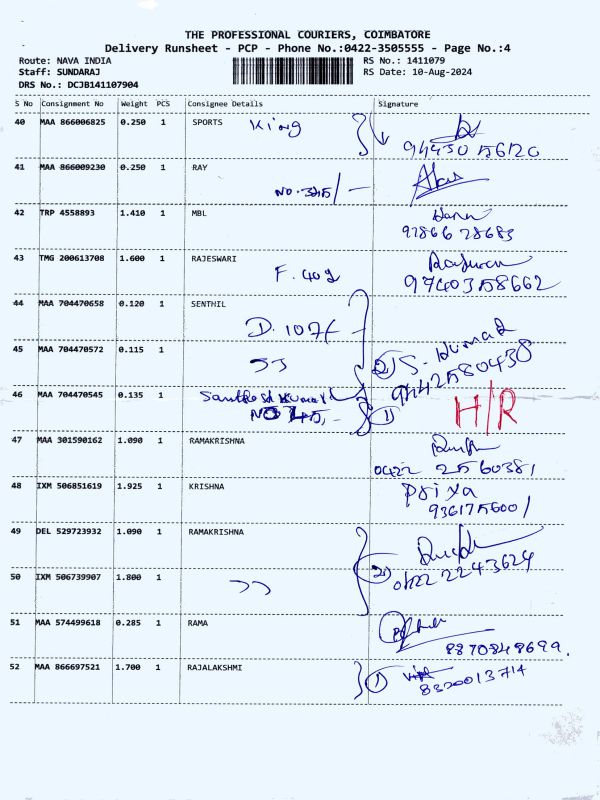 THE PROFESSIONAL COURIERS, COIMBATORE
Delivery Runsheet - PCP - Phone No.:0422-3505555 - Page No.:4
Route: NAVA INDIA RS No.: 1411079
Staff: SUNDARAJ RS Date: 10-Aug-2024
DRS No.: DCJB141107904
S No Consignment No Weight PCS Consignee Details Signature
40 MAA 866006825 0.250 1 SPORTS King
41 MAA 866009230 0.250 1 RAY
42 TRP 4558893 1.410 1 MBL
43 TMG 200613708 1.600 1 RAJESWARI
F. 402
9740358662
44 MAA 704470658 0.120 1 SENTHIL
D. 107/-
45 MAA 704470572 0.115 1
② S. Kumar
9442580430
46 MAA 704470545 0.135 1 Santhosh Kumar
① H/R
47 MAA 301590162 1.090 1 RAMAKRISHNA
0422 2560381
48 IXM 506851619 1.925 1 KRISHNA Priya
936175600/
49 DEL 529723932 1.090 1 RAMAKRISHNA
② 0422 2243624
50 IXM 506739907 1.800 1
51 MAA 574499618 0.285 1 RAMA
8870849699.
52 MAA 866697521 1.700 1 RAJALAKSHMI ①
8320013714